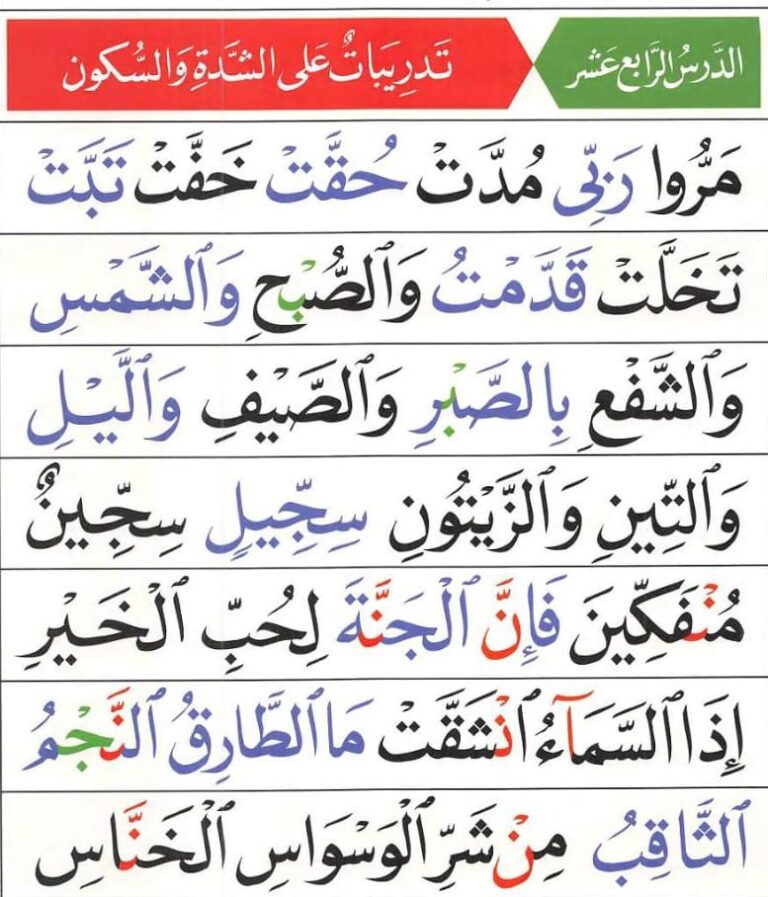 الدَّرسُ الرَّابِع عَشَر تَدرِيبَاتٌ عَلى الشَّدَّةِ وَالسُّكون
مَرُّوا رَبِّى مُدَّتْ حُقَّتْ خَفَّتْ تَبَّتْ
تَخَلَّتْ قَدَّمْتُ وَٱلصُّبْحِ وَٱلشَّمْسِ
وَٱلشَّفْعِ بِالصَّبْرِ وَٱلصَّيْفِ وَٱلَّيْلِ
وَٱلتِّينِ وَٱلزَّيْتُونِ سِجِّيلٍ سِجِّينٌ
مُنْفَكِّينَ فَإِنَّ ٱلْجَنَّةَ لِحُبِّ ٱلْخَيْرِ
إِذَا ٱلسَّمَآءُ ٱنْشَقَّتْ مَا ٱلطَّارِقُ ٱلنَّجْمُ
ٱلثَّاقِبُ مِنْ شَرِّ ٱلْوَسْوَاسِ ٱلْخَنَّاسِ